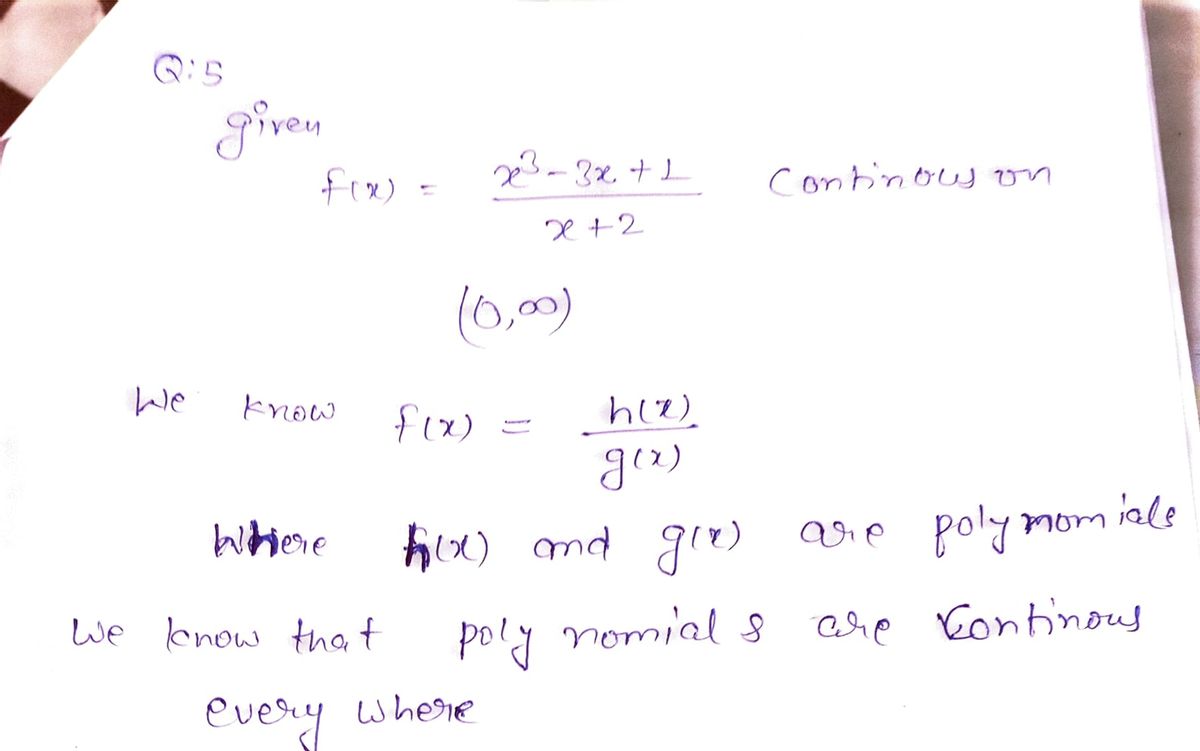 Q:5
given
f(x) = x³-3x+1 / x+2 Continous on
(0,∞)
We know f(x) = h(x) / g(x)
Where h(x) and g(x) are polymomials
We know that poly nomials are Continous
every where